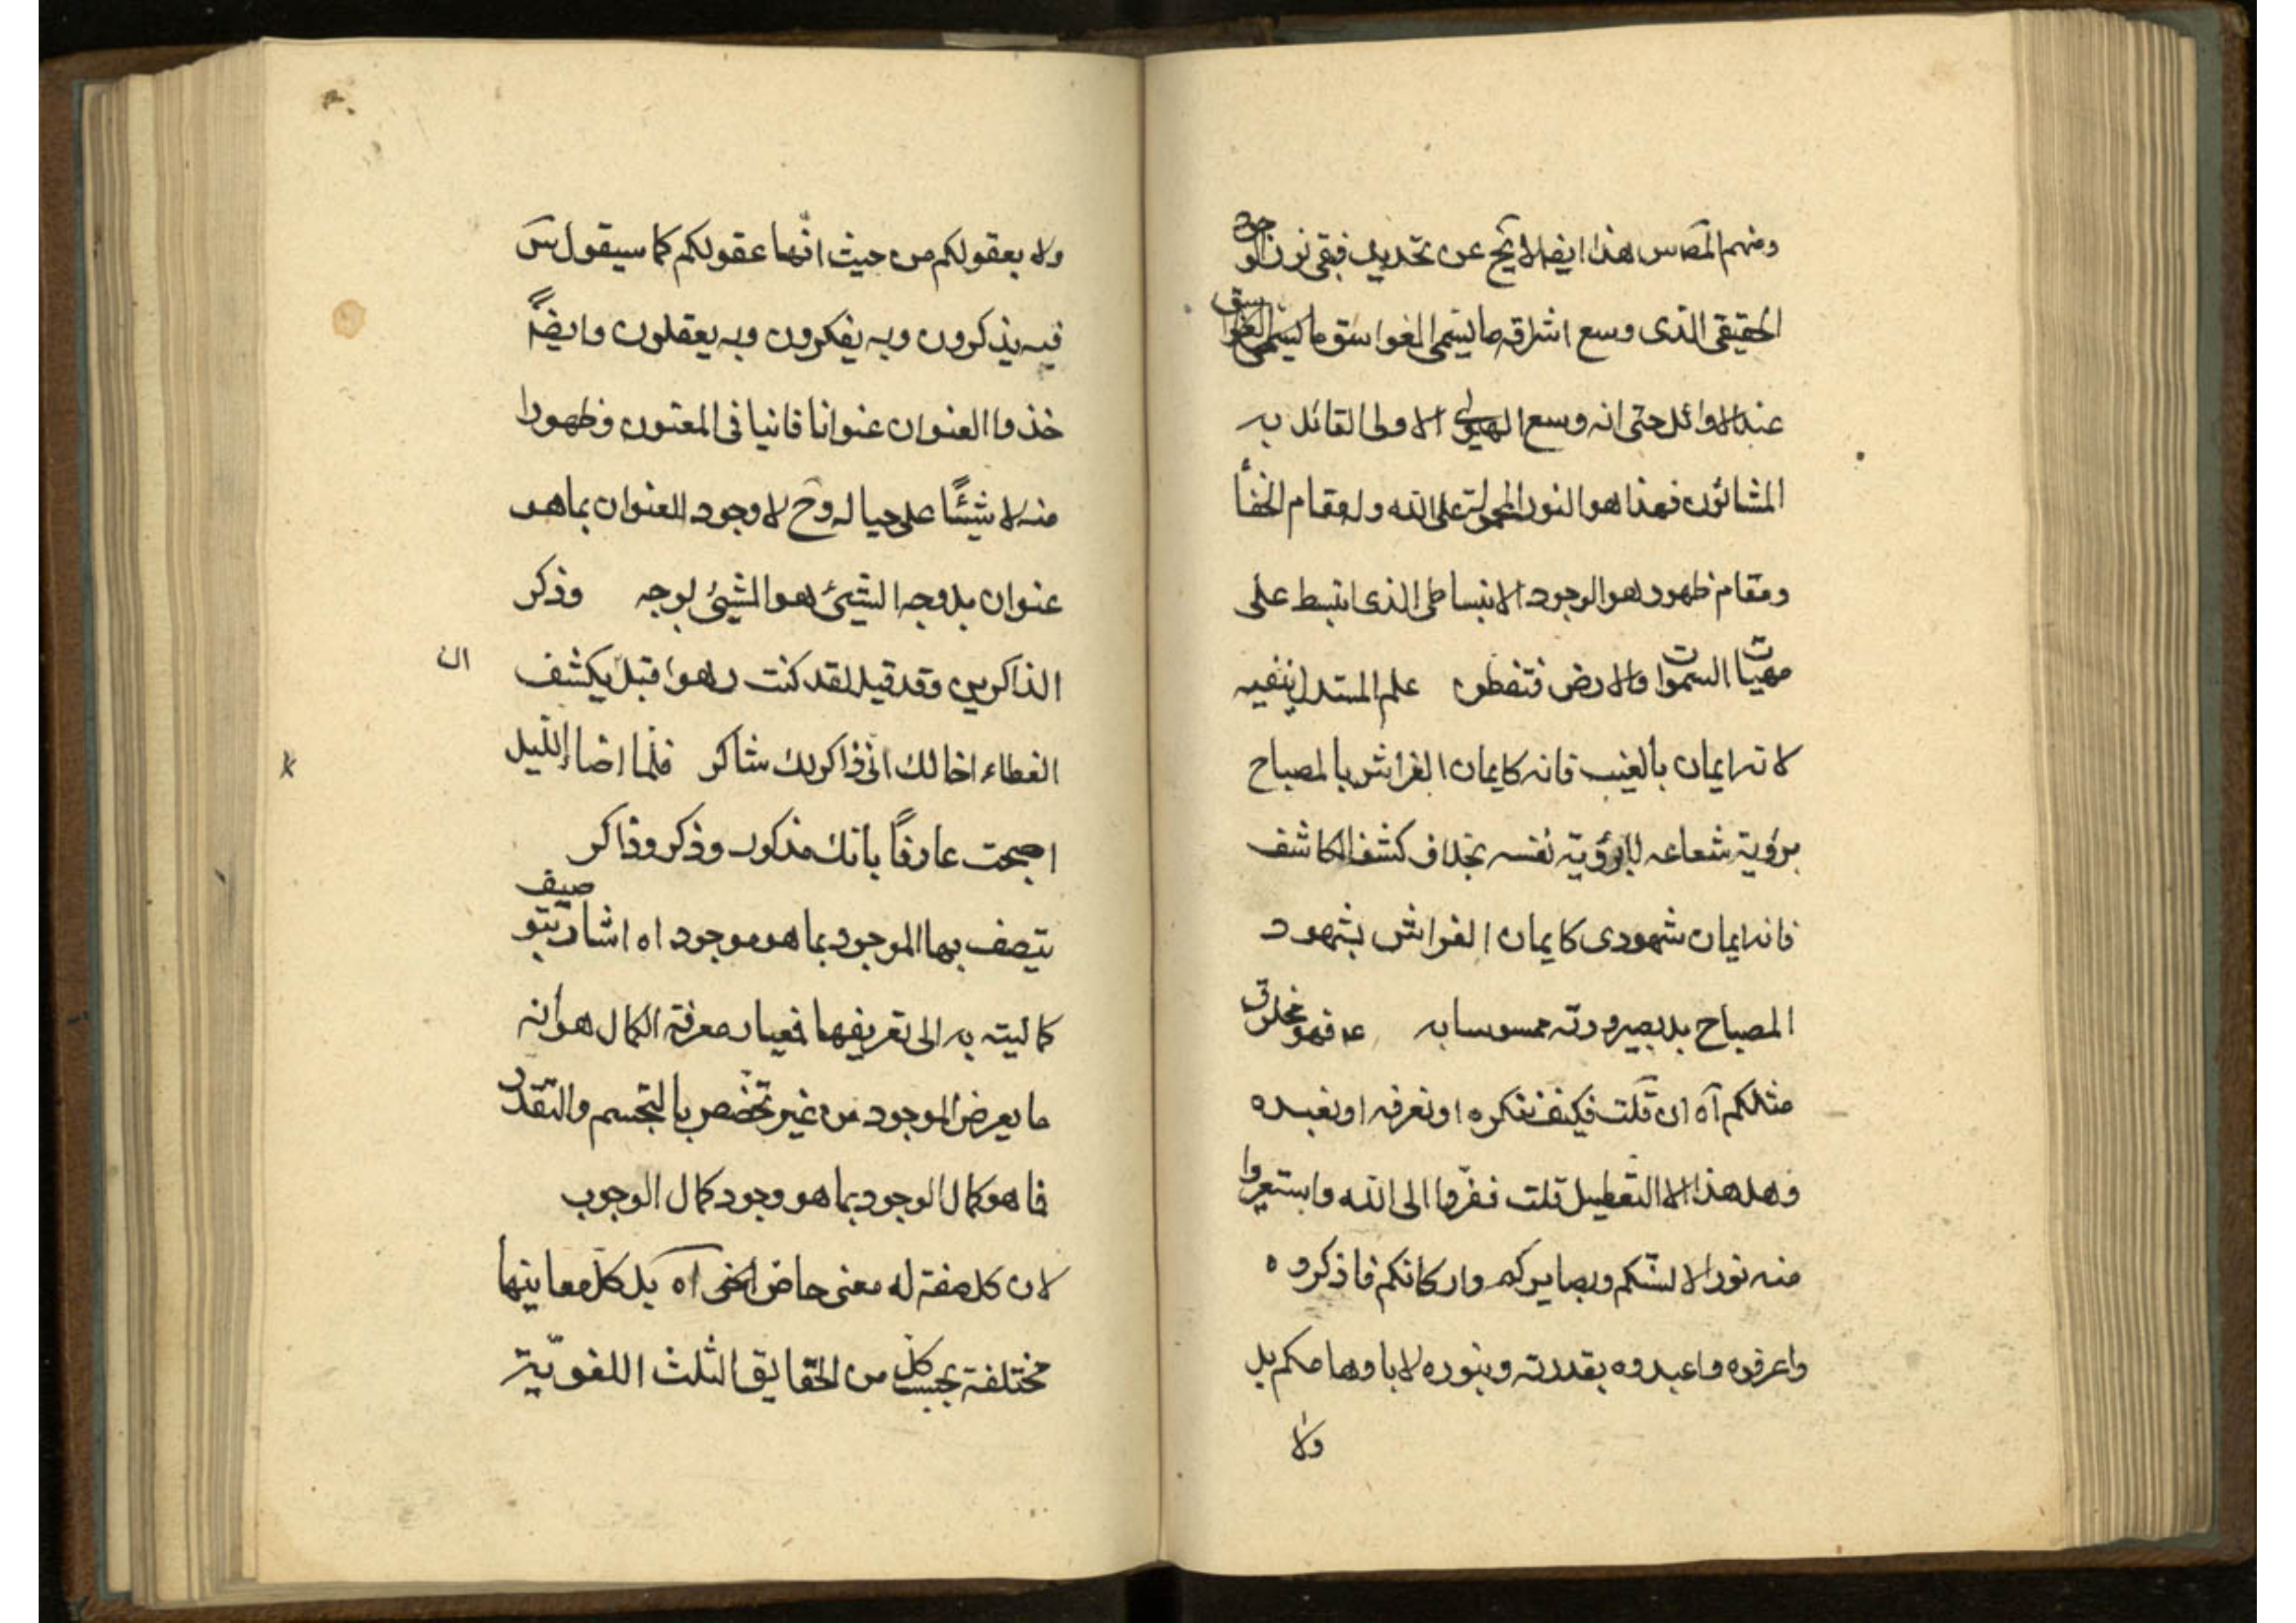 ومنهم هذا ايضا لا يخ عن تحديد فبقى نور الوجود
الحقيقى الذى وسع اشراقه ما يسمى الغواسق ما يسمى الغواسق
عند الاوائل حتى انه وسع الهيولى الاولى القائل به
المشائون فهذا هو النور على الله وله مقام الخفأ
ومقام ظهور هو الوجود الانبساطى الذى انبسط على
مهيات السموات والارض فتفطن علم المستدل ينفيه
لانه ايمان بالغيب فانه كايمان الفراش بالمصباح
برؤية شعاعه لا برؤية نفسه بخلاف كشف الكاشف
فانه ايمان شهودى كايمان الفراش بشهود
المصباح بل بصيرورته ممسوسا به عه فهو مخلوق
مثلكم آه ان قلت فكيف نذكره او نعرفه او نعبده
وهل هذا الا التعطيل قلت ففروا الى الله واستعيروا
منه نورا لالسنكم وبصايركم واركانكم فاذكروه
واعرفوه واعبدوه بقدرته وبنوره لا باوهامكم بل
ولا
ولا بعقولكم من حيث انها عقولكم كما سيقول س
فبه يذكرون وبه يفكرون وبه يعقلون وايضا
خذوا العنوان عنوانا فانيا فى المعنون وظهورا
منه لا شيئا على حياله وح لا وجود للعنوان بما هو
عنوان بل وجه الشيئ هو الشيئ بوجه وذكر
الذاكرين وقد قيل لقد كنت دهرا قبل يكشف
ان
الغطاء اخالك انى ذاكر لك شاكر فلما اضا الليل
اصبحت عارفا بانك مذكور وذكر وذاكر
يتصف بها الموجود بما هو موجود اه اشار بتوصيف
كماليته به الى تعريفها فمعيار معرفة الكمال هو انه
ما يعرض الموجود من غير تخصص بالتجسم والتقدر
فما هو كمال الوجود بما هو وجود كمال الوجوب
لان كل صفة له معنى حاضر آه بل كل معاينها
مختلفة بحسب كل من الحقايق الثلث اللغوية